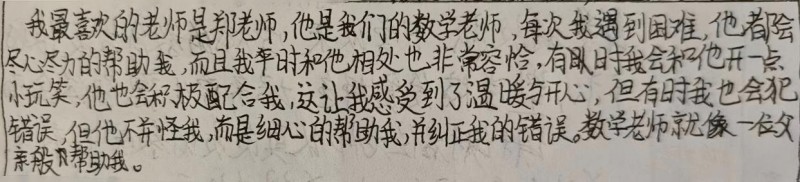 我最喜欢的老师是郑老师，他是我们的数学老师，每次我遇到困难，他都会
尽心尽力的帮助我，而且我平时和他相处也非常容恰，有时我会和他开一点
小玩笑，他也会积极配合我，这让我感受到了温暖与开心，但有时我也会犯
错误，但他不并怪我，而是细心的帮助我，并纠正我的错误。数学老师就像一位父
亲般的帮助我。